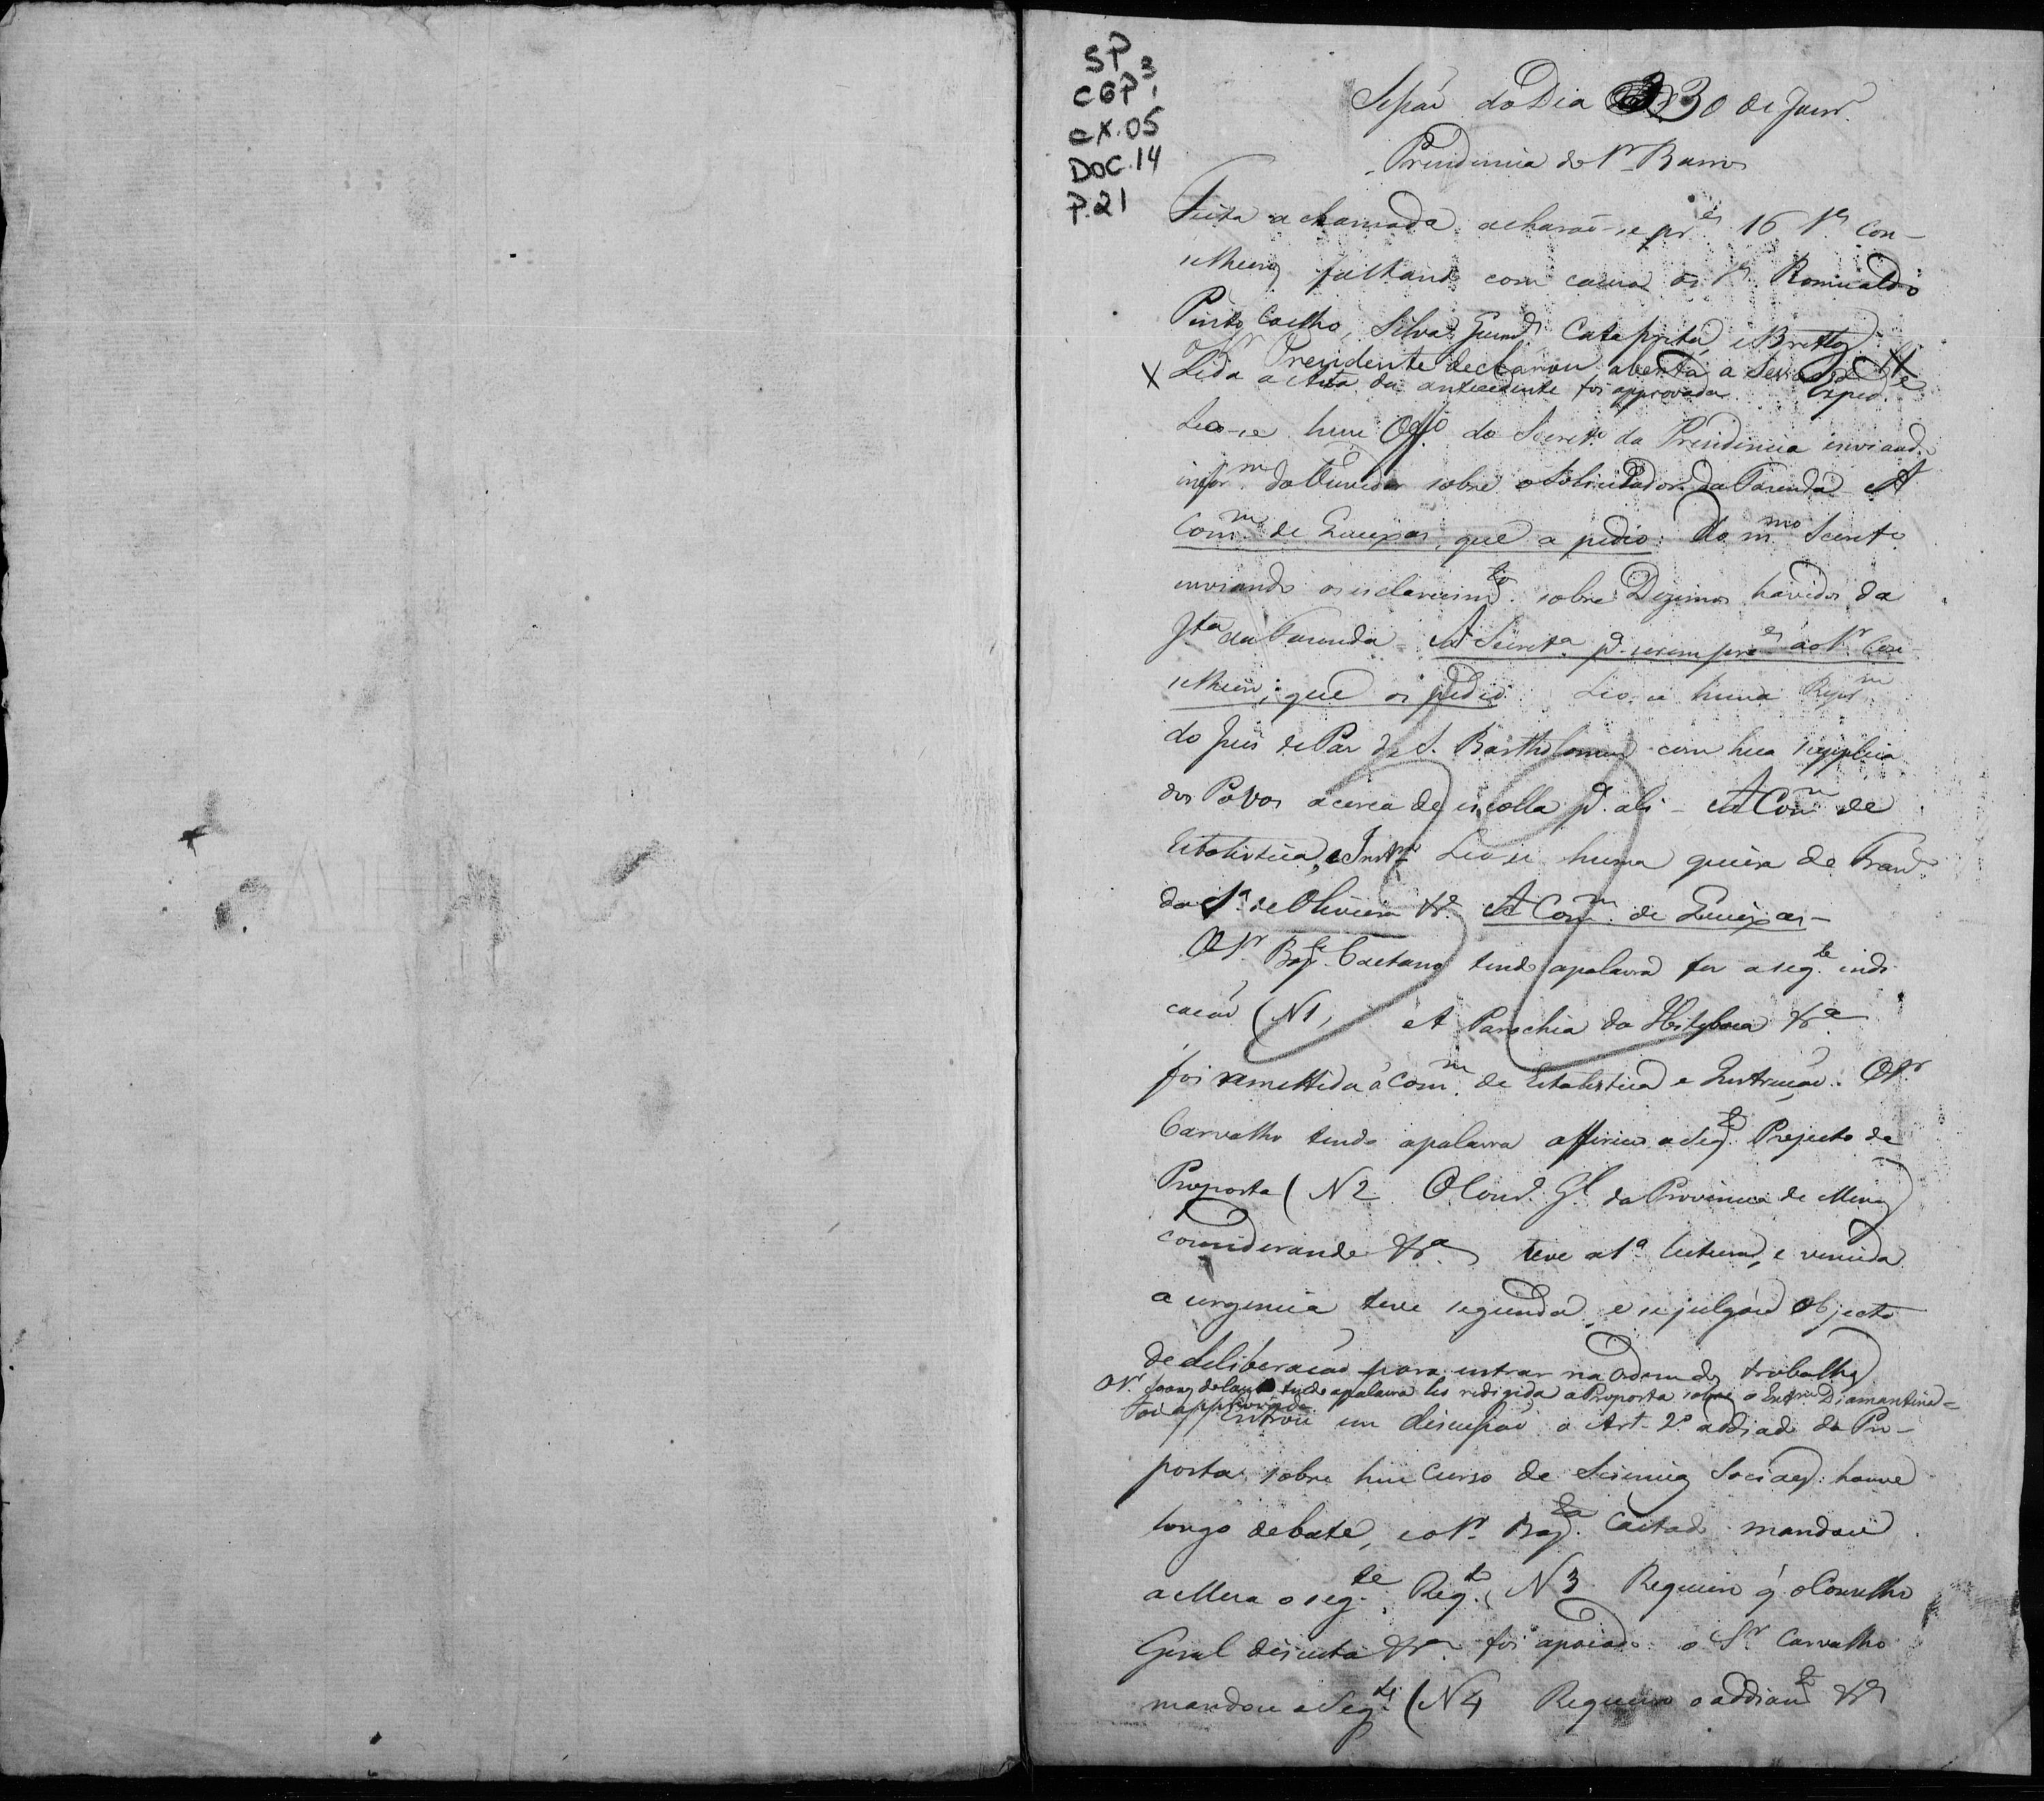 SP
CGP 3.
CX.05
DOC.14
P.21
Sessaõ do Dia 30 de Janr.º
Presidencia do Sr Barros
Feita a chamada acharaõ-se pr.es 16 S.es Con-
selheiros faltando com causa os S.es Romualdo
Pinto Coelho, Silva Guim.es Cata preta, e Brettas
O Sr Presidente declarou aberta a Sessaõ
X Lida a Acta da antecedente foi approvada. Exped.e
Leo-se hum Off.º do Secret.º da Presidencia enviando
infor.m do Ouvidor sobre o Solicitador da Fazenda A
Com.m de Queixas, que a pedio: Do m.mo Secret.º
enviando os esclarecim.tos sobre Dizimos havidos da
J.ta da Fazenda - A Secret.a p.a serem pres.es ao Sr Con-
selheiro, que os pedio. Leo-se huma Repr.m
do Juis de Paz de S. Bartholomeu com hua supplica
dos Povos acerca de escolla p.a ali - A Com.m de
Estatistica, e Instr.m Leo-se huma queixa de Fran.co
da S.a de Oliveira &.a A Com.m de Queixas -
O Sr. Bap.ta Caetano tendo a palavra fez a seg.te indi-
cacaõ (N1, A Parochia da &.a
foi remettida á Com.m de Estatistica e Instrucaõ. O Sr.
Carvalho tendo a palavra offereceo o seg.te Projecto de
Proposta (N2 O Cons.º G.l da Provincia de Minas
considerando &.a teve a 1.a leitura, e vencida
a urgencia teve segunda, e se julgou objecto
de deliberacaõ para entrar na Ordem dos trabalhos
O Sr. tendo a palavra leo redigida a Proposta sobre a Extr.m Diamantina =
Foi approvada. Entrou em discussaõ o Art. 2º addiado da Pro-
posta sobre hum Curso de Sciencias Sociaes: houve
longo debate, e o Sr. Bap.ta Caetano mandou
a Mesa o seg.te Req.to (N3 Requeiro q̃ o Conselho
Geral discuta &.a foi apoiado: o Sr Carvalho
mandou o Seg.te (N4 Requeiro o addiam.to &.a